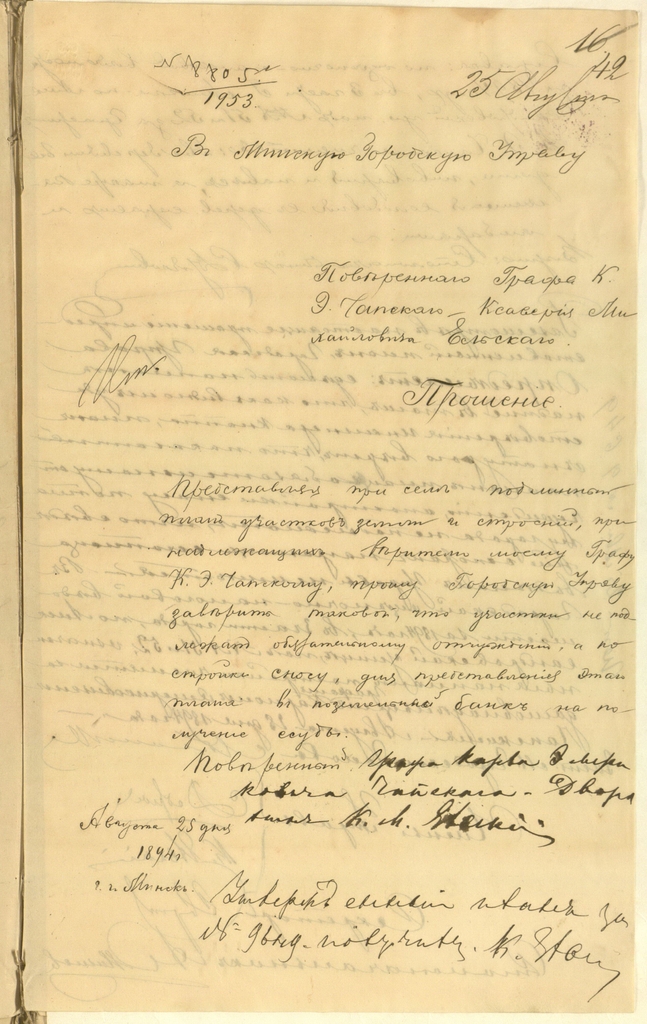 16
42
N 8805
1953.
25 Августа
Въ Минскую Городскую Управу
Повѣреннаго Графа К.
Э. Чапскаго – Ксаверія Ми
хайловича Ельскаго.
Прошеніе.
Представляя при семъ подлинный
планъ участковъ земли и строеній, при
надлежащихъ вѣрителю моему Графу
К. Э. Чапскому, прошу Городскую Управу
завѣрить таковой, что участки не под
лежатъ обязательному отчужденію, а по
стройки сносу, для представленія этого
плана въ поземельный банкъ на по
лученіе ссуды.
Повѣренный Графа Карла Эмери
ковича Чапскаго – Дворя
нинъ К. М. Ельскій
Августа 25 дня
1894 г.
г. Минскъ.
Утвержденный планъ за
№ получилъ. К. Ельскій